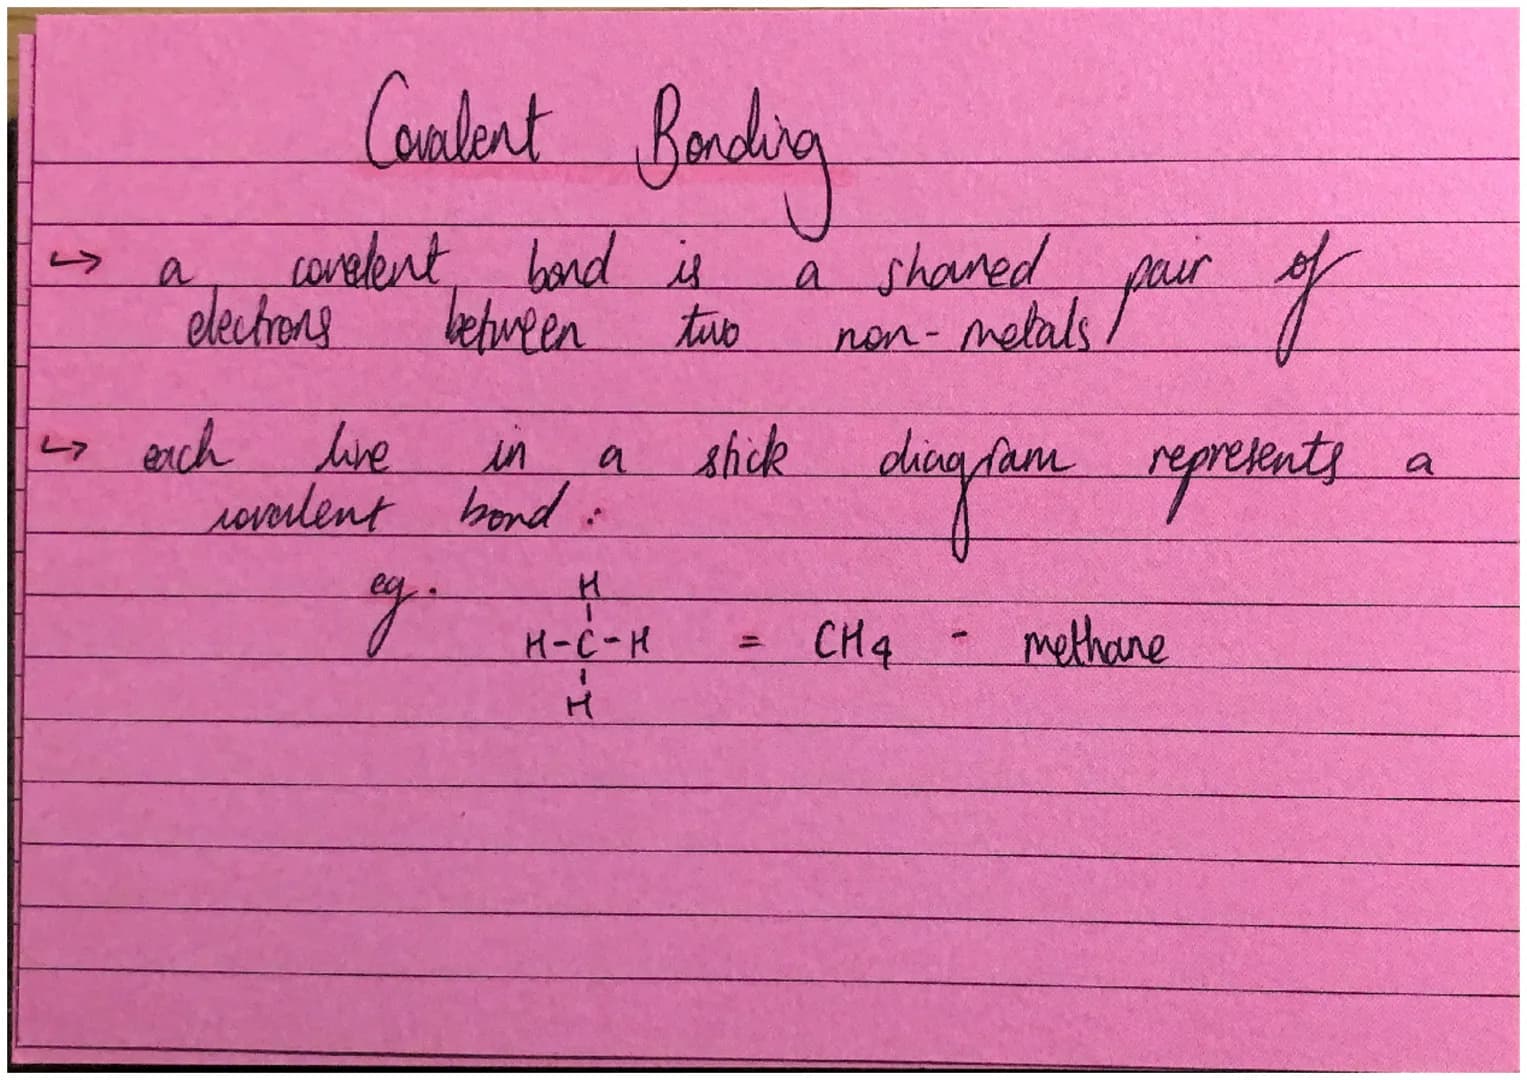 Covalent Bonding
↳ a covalent bond is a shared pair of
electrons between two non-metals
↳ each line in a stick diagram represents a
covalent bond:
eg. H
|
H-C-H = CH4 - methane
|
H